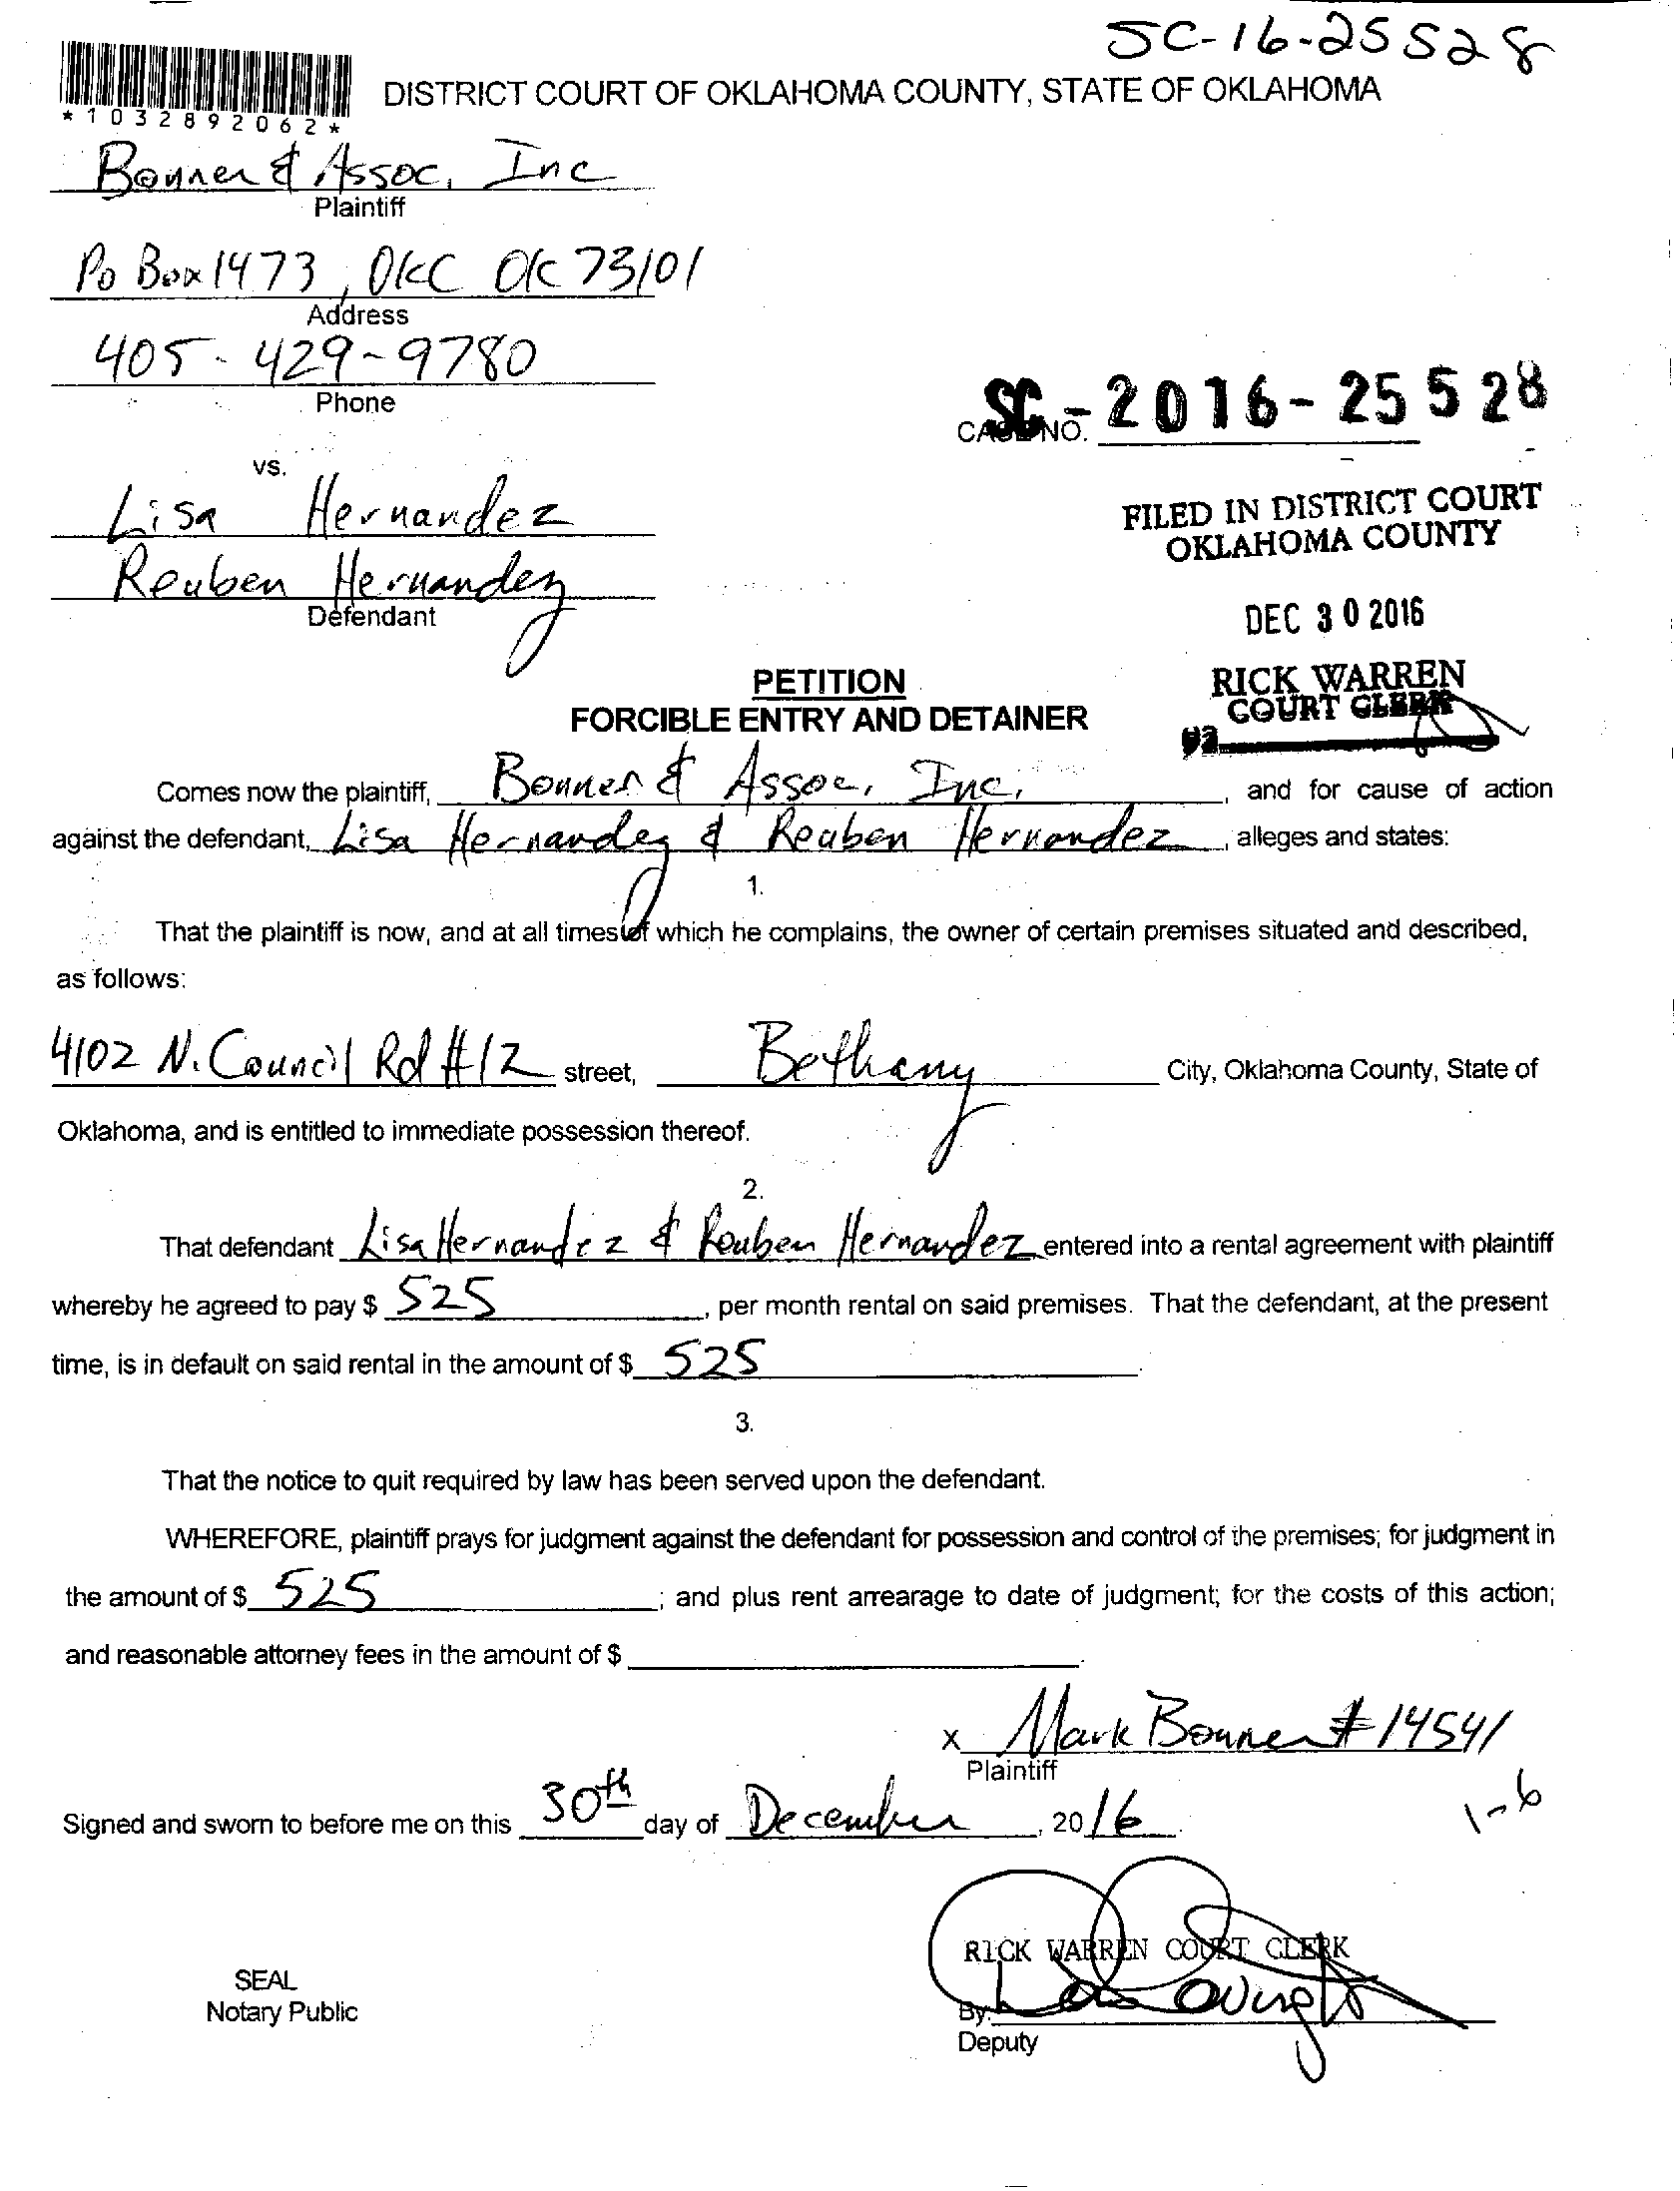 SC-16-25528
DISTRICT COURT OF OKLAHOMA COUNTY, STATE OF OKLAHOMA
*1032892062*
Bonner & Assoc, Inc
Plaintiff
Po Box 1473, OKC OK 73101
Address
405-429-9780
Phone
SC-2016-25528
CASE NO.
vs.
Lisa Hernandez
Reuben Hernandez
Defendant
FILED IN DISTRICT COURT
OKLAHOMA COUNTY
DEC 30 2016
RICK WARREN
COURT CLERK
PETITION
FORCIBLE ENTRY AND DETAINER
Comes now the plaintiff, Bonner & Assoc, Inc, , and for cause of action
against the defendant, Lisa Hernandez & Reuben Hernandez , alleges and states:
1.
That the plaintiff is now, and at all times of which he complains, the owner of certain premises situated and described,
as follows:
4102 N. Council Rd #12 street, Bethany City, Oklahoma County, State of
Oklahoma, and is entitled to immediate possession thereof.
2.
That defendant Lisa Hernandez & Reuben Hernandez entered into a rental agreement with plaintiff
whereby he agreed to pay $ 525 , per month rental on said premises. That the defendant, at the present
time, is in default on said rental in the amount of $ 525 .
3.
That the notice to quit required by law has been served upon the defendant.
WHEREFORE, plaintiff prays for judgment against the defendant for possession and control of the premises; for judgment in
the amount of $ 525 ; and plus rent arrearage to date of judgment; for the costs of this action;
and reasonable attorney fees in the amount of $ .
x Mark Bonner #14541
Plaintiff
1-6
Signed and sworn to before me on this 30th day of December , 2016 .
RICK WARREN COURT CLERK
SEAL
Notary Public
By:
Deputy